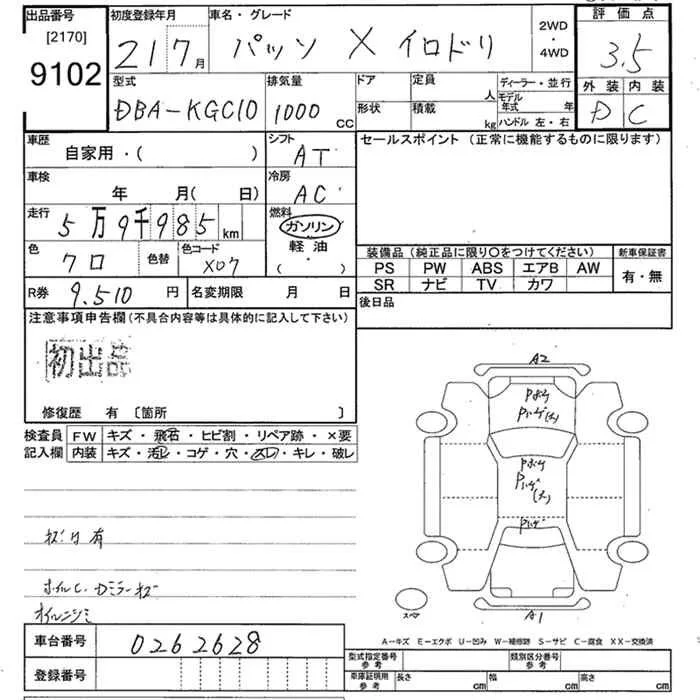 出品番号
[2170]
9102
初度登録年月
21 7月
車名・グレード
パッソ X イロドリ
2WD・4WD
評価点
3.5
外装 内装
D C
型式
DBA-KGC10
排気量
1000 CC
ドア
形状
定員 人
積載 kg
ディーラー・並行
モデル年式 年
ハンドル 左・右
車歴
自家用・( )
シフト
AT
車検
年 月( 日)
冷房
AC
走行
5万9千985km
燃料
ガソリン
軽油
( ・ )
色
クロ
色替
色コード
X07
R券 9,510 円
名変期限 月 日
セールスポイント (正常に機能するものに限ります)
装備品(純正品に限り○をつけてください)
PS PW ABS エアB AW
SR ナビ TV カワ
新車保証書
有・無
後日品
注意事項申告欄(不具合内容等は具体的に記入して下さい)
初出品
修復歴 有 〔箇所 〕
検査員記入欄
FW キズ・飛石・ヒビ割・リペア跡・×要
内装 キズ・汚レ・コゲ・穴・スレ・キレ・破レ
有
ホイルC. Dミラーキズ
オイルニジミ
A2
Pボケ
Pハゲ(大)
Pボケ
Pハゲ(大)
Pハゲ
A1
スペア
A-キズ E-エクボ U-凹み W-補修跡 S-サビ C-腐食 XX-交換済
車台番号
0262628
登録番号
型式指定番号 参考
類別区分番号 参考
車庫証明用 参考
長さ cm
幅 cm
高さ cm